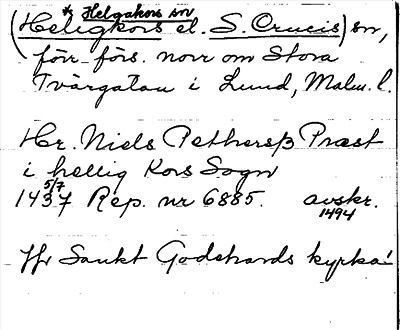 * Helgakors sn
(Heligkors el. S. Crucis) sn,
förr förs. norr om Stora
Tvärgatan i Lund, Malm. l.
Hr. Niels Pethersß Præst
i hellig Kors Sogn
5/7
1437 Rep. nr 6885. avskr.
1494
Jfr Sankt Godehards kyrka